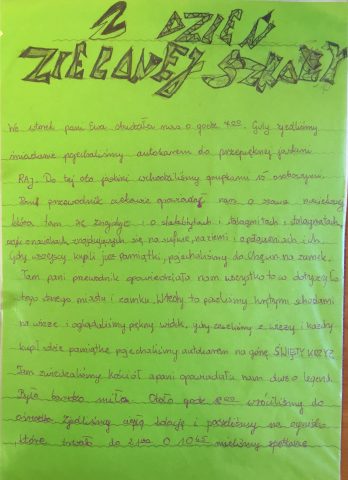 2 DZIEŃ
ZIELONEJ SZKOŁY
We wtorek pani Ewa obudziła nas o godz 7:00. Gdy zjedliśmy
śniadanie pojechaliśmy autokarem do przepięknej jaskini
RAJ. Do tej oto jaskini wchodziliśmy grupkami 15 osobowymi.
Pani przewodnik ciekawie opowiadała nam o
która tam się znajduje i o stalaktytach i stalagmitach i stalagnatach
czyli o naciekach znajdujących się na suficie, na ziemi i
Gdy wszyscy kupili już pamiątki, pojechaliśmy do Chęcin na zamek.
Tam pani przewodnik opowiedziała nam wszystko to w dotyczyło
tego danego miasta i zamku. Wtedy to poszliśmy krętymi schodami
na wieże i oglądaliśmy piękny widok, gdy zeszliśmy z wieży i każdy
kupił sobie pamiątkę pojechaliśmy autokarem na górę ŚWIĘTY KRZYŻ
Tam zwiedzaliśmy kościół a pani opowiadała nam dużo legend.
Było bardzo miło. Około godz 18:00 wróciliśmy do
ośrodka. Zjedliśmy kolację i poszliśmy na ognisko
które trwało do 21:00 O mieliśmy